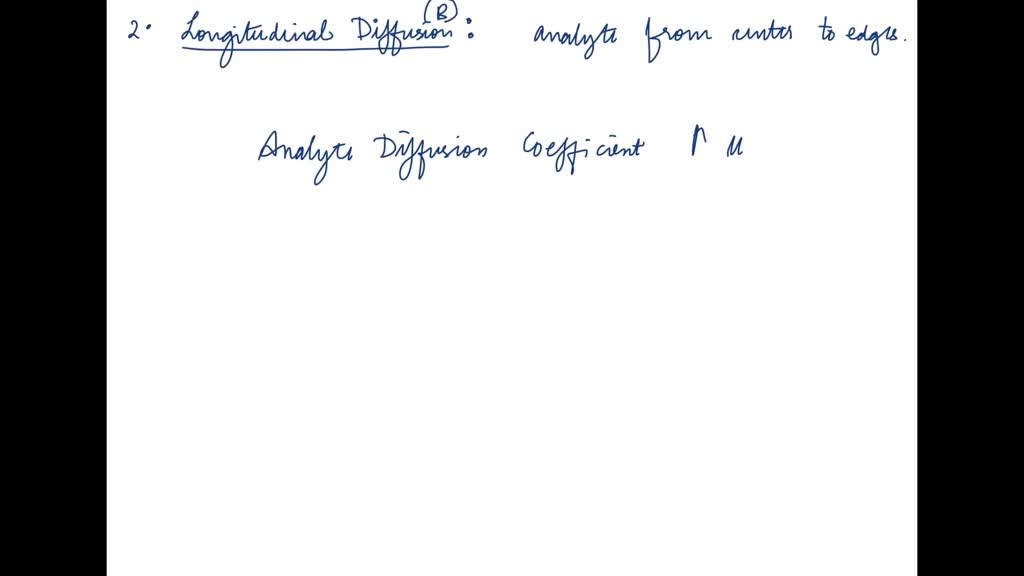 2. Longitudinal Diffusion (B) : analyte from center to edges.
Analyte Diffusion Coefficient ↑ u